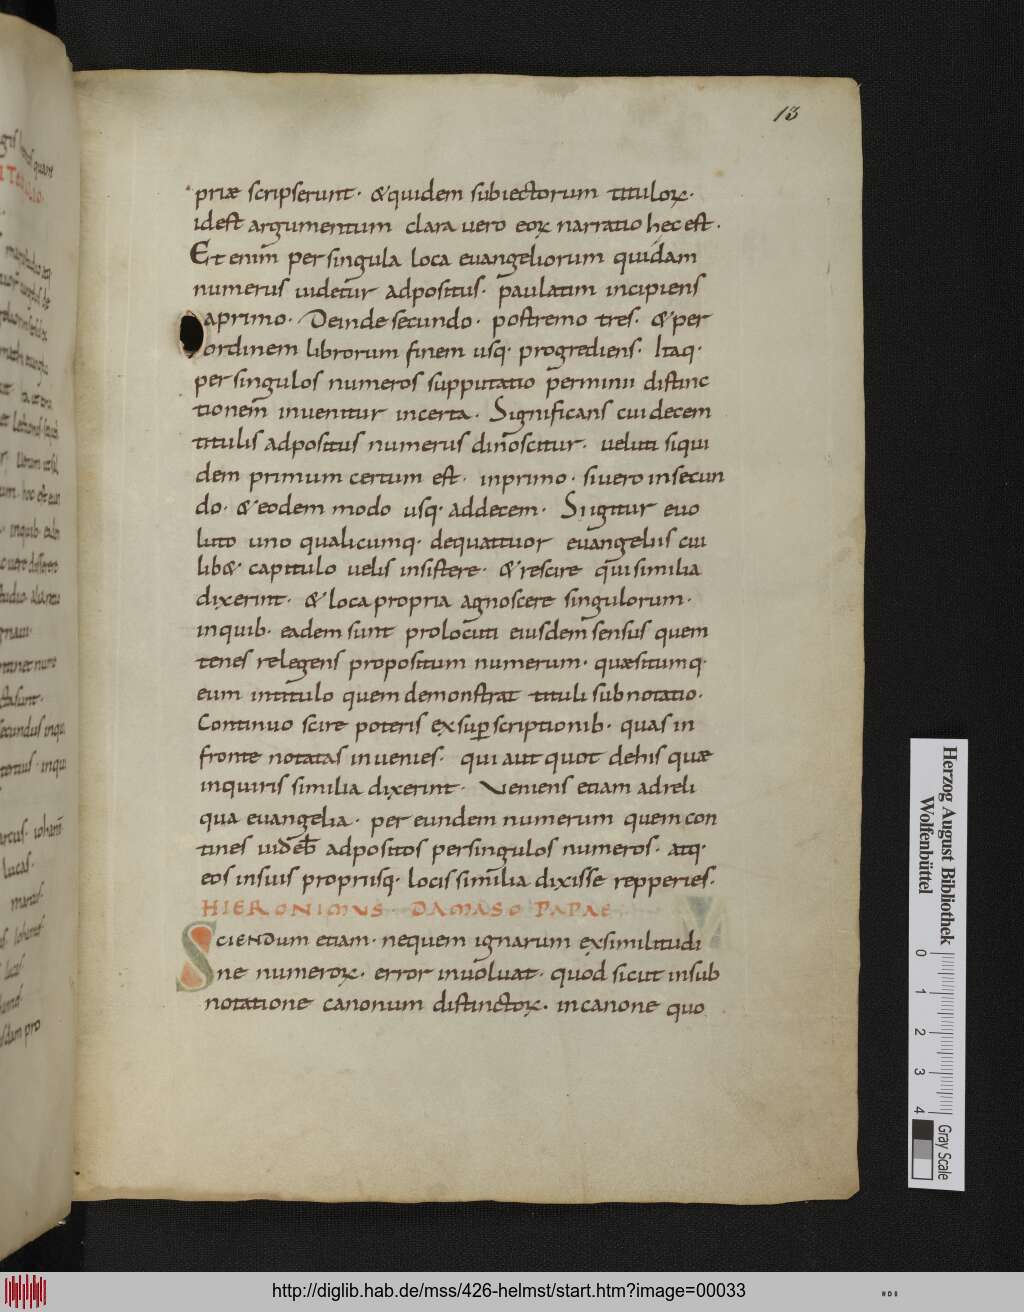 13
priæ scripserunt · &quidem subiectorum tituloꝝ ·
idest argumentum clara uero eoꝝ narratio hec est ·
Et enim̄ per singula loca euangeliorum quidam
numerus uidet̄ur adpositus · paulatim incipiens
aprimo · Deinde secundo · postremo tres · & per
ordinem librorum finem usq· progrediens · Itaq·
per singulos numeros supputatio perminii distinc
tionem̄ inuenitur incerta · Significans cui decem
titulis adpositus numerus dinoscitur · ueluti siqui
dem primum certum est · inprimo · siuero insecun
do · & eodem modo usq· addecem · Siigitur euo
luto uno qualicumq· dequattuor euangeliis cui
lib& · capitulo uelis insistere · & rescire qui similia
dixerint · & loca propria agnoscere singulorum ·
inquib· eadem sunt prolocuti eiusdem sensus quem
tenes relegens propositum numerum · quæsitumq·
eum intitulo quem demonstrat tituli subnotatio ·
Continuo scire poteris exsup̄scriptionib· quas in
fronte notatas inuenies · qui aut quot dehis quæ
inquiris similia dixerint · Veniens etiam adreli
qua euangelia · per eundem numerum quem con
tines uideb̄ adpositos persingulos numeros · atq·
eos insuis propriisq· locis similia dixisse repperies ·
HIERONIMUS · DAMASO PAPAE
Sciendum etiam · nequem ignarum exsimilitudi
ne numeroꝝ · error inuoluat · quod sicut insub
notatione canonum distinctoꝝ · incanone quo
Herzog August Bibliothek
Wolfenbüttel
0 1 2 3 4
Gray Scale
http://diglib.hab.de/mss/426-helmst/start.htm?image=00033